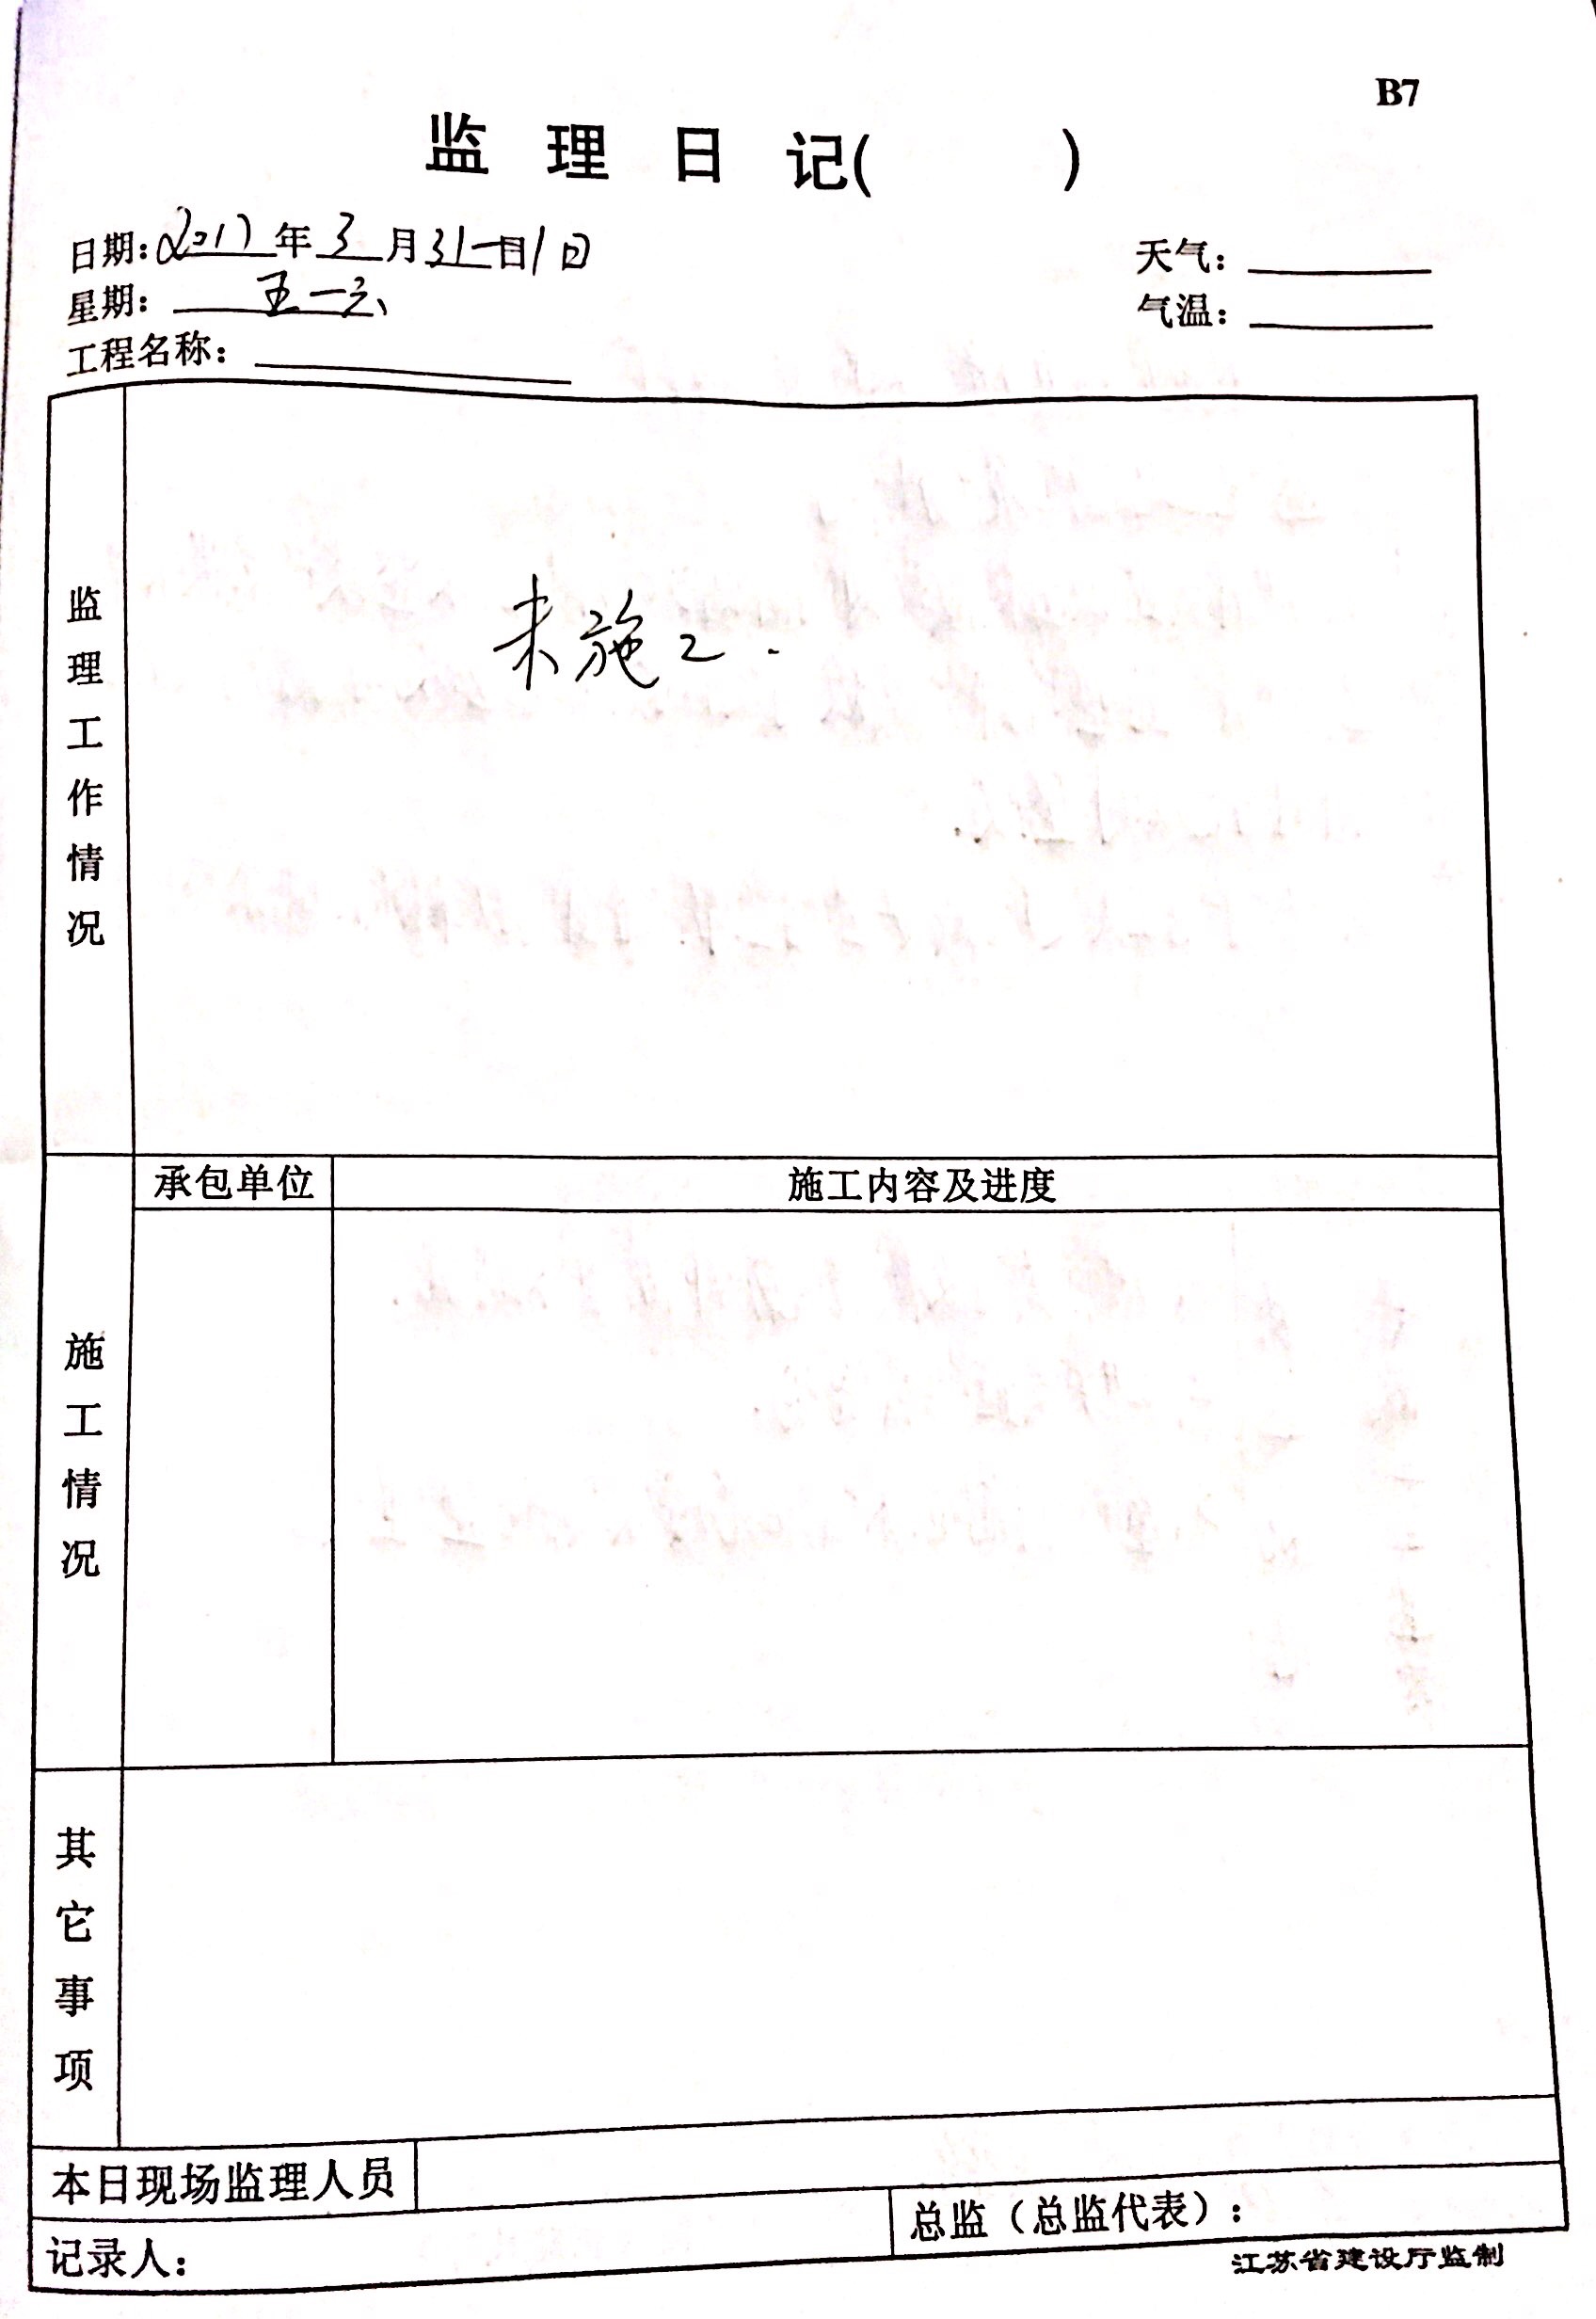 B7
监理日记( )
日期:2017年3月31一日1日
天气:
星期:五一六
气温:
工程名称:
监理工作情况
未施工.
承包单位
施工内容及进度
施工情况
其它事项
本日现场监理人员
记录人:
总监(总监代表):
江苏省建设厅监制